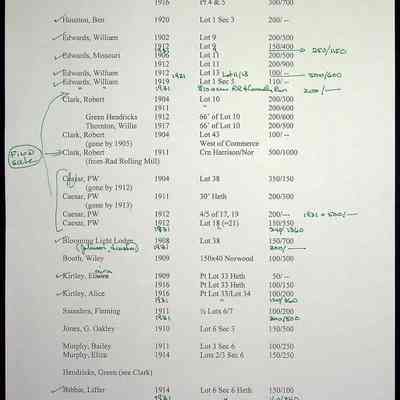 1916 Pt 4 & 5 300/700
✓ Houston, Ben 1920 Lot 1 Sec 3 200/--
✓ Edwards, William 1902 Lot 9 200/500
1912 Lot 9 150/400 → 250/1150
1921
Edwards, Missouri 1906 Lot 11 200/500
1912 Lot 11 200/900
✓ Edwards, William 1912 Lot 13 100/--
1921 Lot 11/13 500/600
✓ Edwards, William 1919 Lot 1 Sec 3 110/--
" " 1921 200/--
Clark, Robert 1904 Lot 10 200/300
1911 " 200/600
Green Hederick 1912 66' of Lot 10 200/600
Thornton, Willie 1917 66' of Lot 10 200/500
Clark, Robert 1904 Lot 43 100/--
(gone by 1905) West of Commerce
FIND
✓ Clark, Robert 1911 Crn Harrison/Nor 500/1000
(from-Rad Rolling Mill)
Caesar, PW 1904 Lot 38 350/150
(gone by 1912)
Caesar, PW 1911 30' Heth 200/300
(gone by 1913)
Caesar, PW 1912 4/5 of 17, 19 200/-- 1921 = 500/--
Caesar, PW 1912 Lot 18 (=21) 150/550
1921 240/1360
✓ Blooming Light Lodge 1908 Lot 38 150/700
1921 300/--
Booth, Wiley 1909 150x40 Norwood 100/300
✓ Kirtley, 1909 Pt Lot 33 Heth 50/--
1916 Pt Lot 33 Heth 100/150
✓ Kirtley, Alice 1916 Pt Lot 33/Lot 34 100/200
1921 "
Saunders, Fleming 1911 ½ Lots 6/7 100/200
1921 200/800
Jones, G. Oakley 1910 Lot 6 Sec 5 150/500
Murphy, Bailey 1911 Lot 3 Sec 6 100/250
Murphy, Eliza 1914 Lots 2/3 Sec 6 150/250
Hendricks, Green (see Clark)
✓ Bibbs, Liffer 1914 Lot 6 Sec 6 Heth 150/100
1921